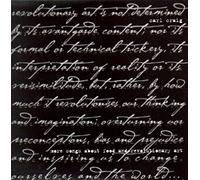 revolutionary art is not determined
carl craig
by its avant-garde content, nor its
formal or technical trickery, its
interpretation of reality or its
verisimilitude, but, rather, by how
much it revolutionises our thinking
and imagination; overturning our
preconceptions, bias and prejudice
more songs about food and revolutionary art
and inspiring us to change
ourselves and the world...